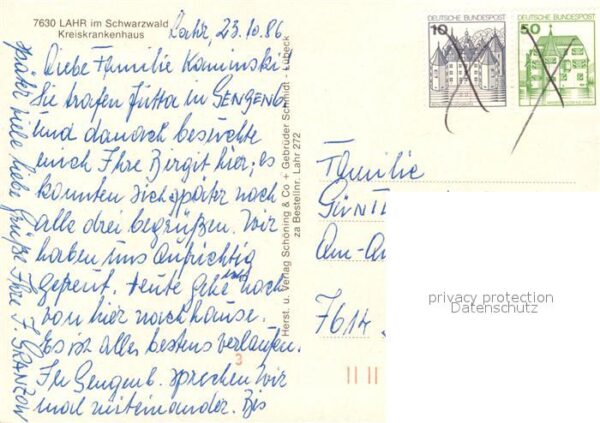 7630 LAHR im Schwarzwald
Kreiskrankenhaus
Lahr, 23.10.86
Liebe Familie Kaminski
Sie trafen Jutta in GENGENB.
und danach besuchte
mich Ihre Birgit hier; es
konnten sich später noch
alle drei begrüßen. Wir
haben uns aufrichtig
gefreut. Heute gehe noch
von hier nachhause.
Es ist alles bestens verlaufen.
In Gengenb. sprechen wir
mal miteinander. Bis
später viele liebe Grüße Ihre J. GRANZOW
Herst. u. Verlag Schöning & Co + Gebrüder Schmidt - Lübeck
za Bestellnr. Lahr 272
3
DEUTSCHE BUNDESPOST
10
DEUTSCHE BUNDESPOST
50
Familie
GÜNT
Am-
7614
privacy protection
Datenschutz